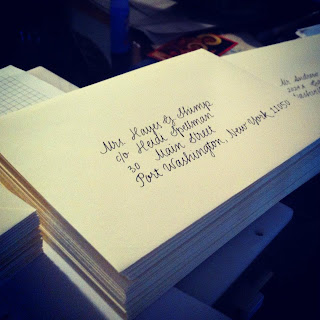 Mrs Hayes Shump
c/o Heidi Spellman
30 Main Street
Port Washington, New York, 11050
Mr.